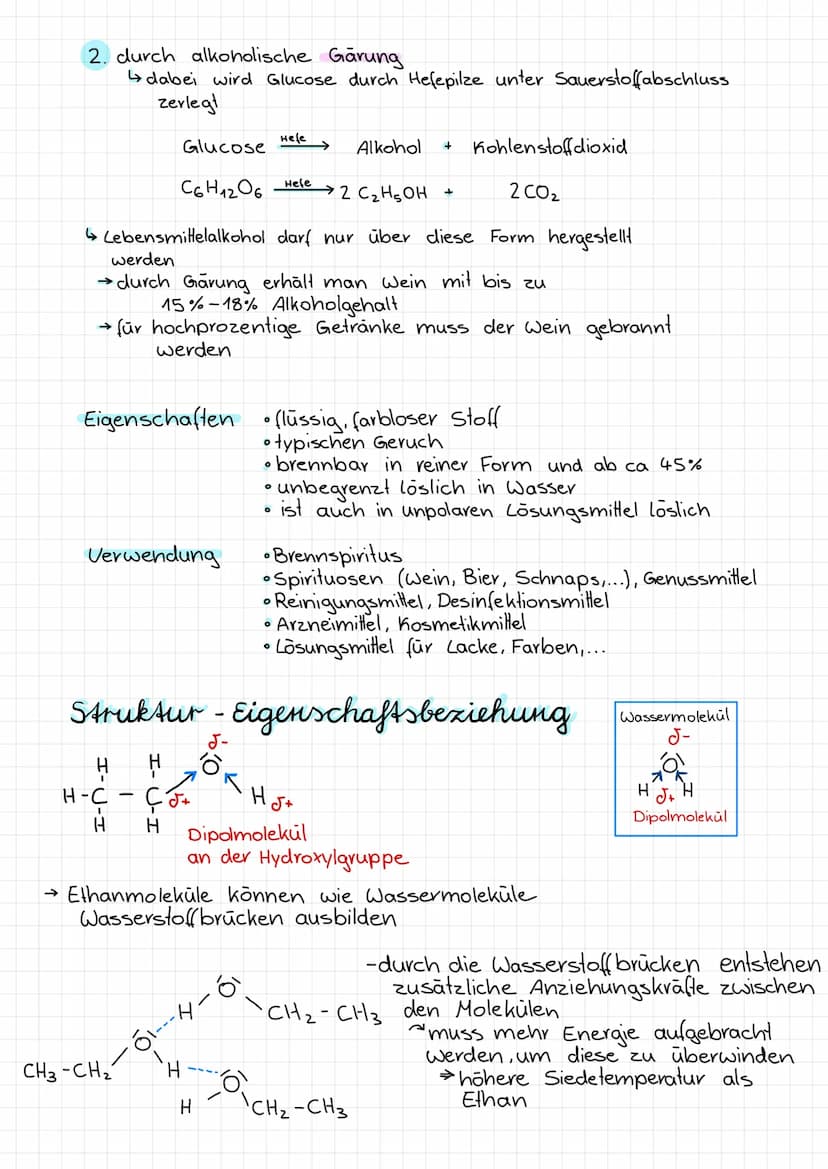 2. durch alkoholische Gärung
↳ dabei wird Glucose durch Hefepilze unter Sauerstoffabschluss
zerlegt
Glucose Hefe → Alkohol + Kohlenstoffdioxid
C6H12O6 Hefe → 2 C2H5OH + 2 CO2
↳ Lebensmittelalkohol darf nur über diese Form hergestellt
werden
→ durch Gärung erhält man Wein mit bis zu
15%-18% Alkoholgehalt
→ für hochprozentige Getränke muss der Wein gebrannt
werden
Eigenschaften • flüssig, farbloser Stoff
• typischen Geruch
• brennbar in reiner Form und ab ca 45%
• unbegrenzt löslich in Wasser
• ist auch in unpolaren Lösungsmittel löslich
Verwendung • Brennspiritus
• Spirituosen (Wein, Bier, Schnaps,...), Genussmittel
• Reinigungsmittel, Desinfektionsmittel
• Arzneimittel, Kosmetikmittel
• Lösungsmittel für Lacke, Farben,...
Struktur - Eigenschaftsbeziehung
δ-
H H O
H-C - C δ+ H δ+
H H
Dipolmolekül
an der Hydroxylgruppe
Wassermolekül
δ-
O
H δ+ H
Dipolmolekül
→ Ethanmoleküle können wie Wassermoleküle
Wasserstoffbrücken ausbilden
O
H CH2-CH3
O
CH3-CH2 H
O
H CH2-CH3
-durch die Wasserstoffbrücken entstehen
zusätzliche Anziehungskräfte zwischen
den Molekülen
↷ muss mehr Energie aufgebracht
werden, um diese zu überwinden
→ höhere Siedetemperatur als
Ethan